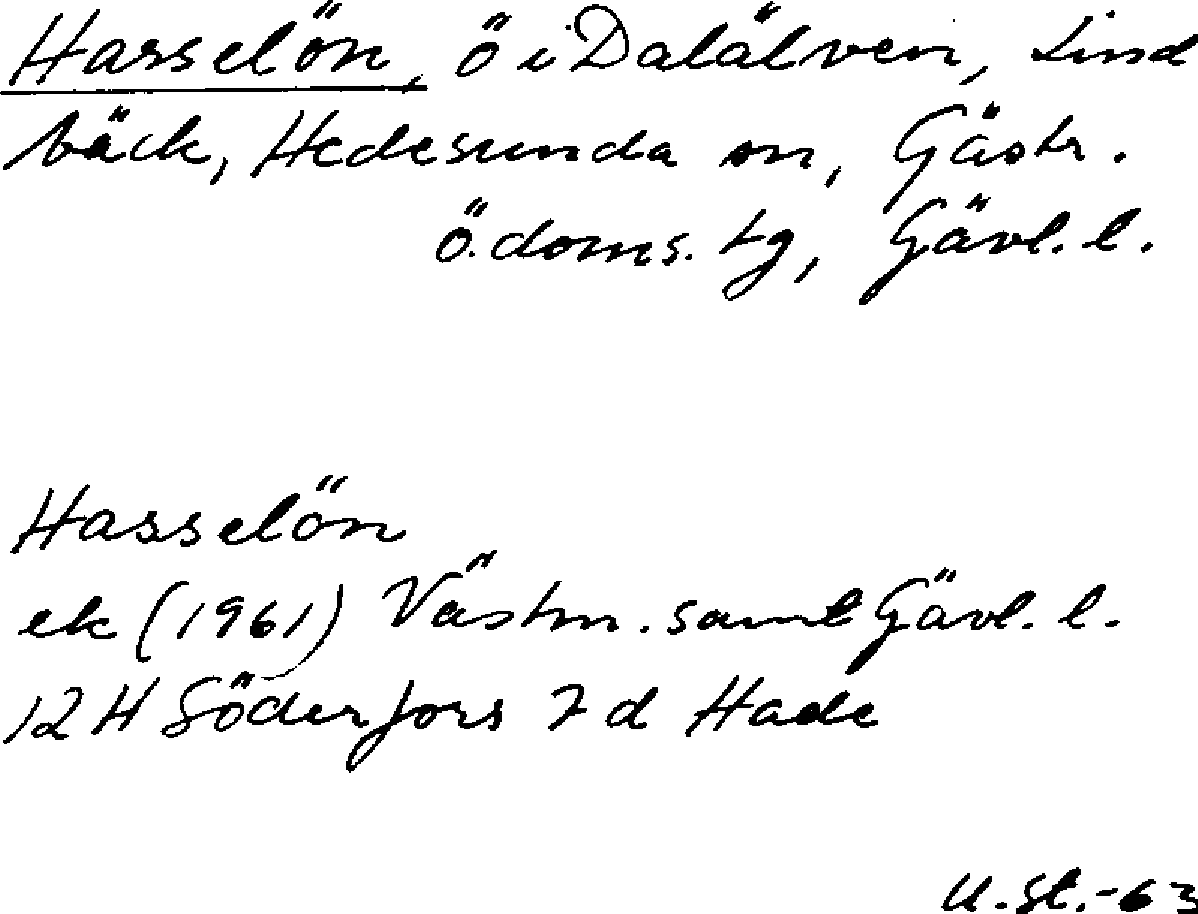 Hasselön, ö i Dalälven, Lind
bäck, Hedesunda sn, Gästr.
ö. doms. tg, Gävl. l.
Hasselön
ek (1961) Västm. samt Gävl. l.
12H Söderfors 7d Hade
U.St.-63